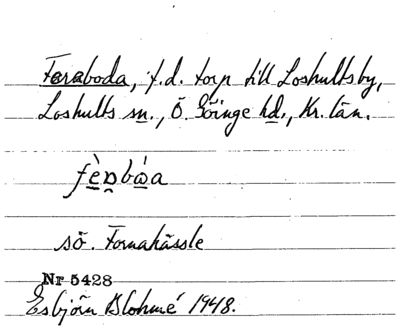 Foraboda, f.d. torp till Loshultsby,
Loshults sn., Ö. Göinge hd., Kr. län.
sö. Fornahässle
Nr 5428
Esbjörn Blohmé 1948.